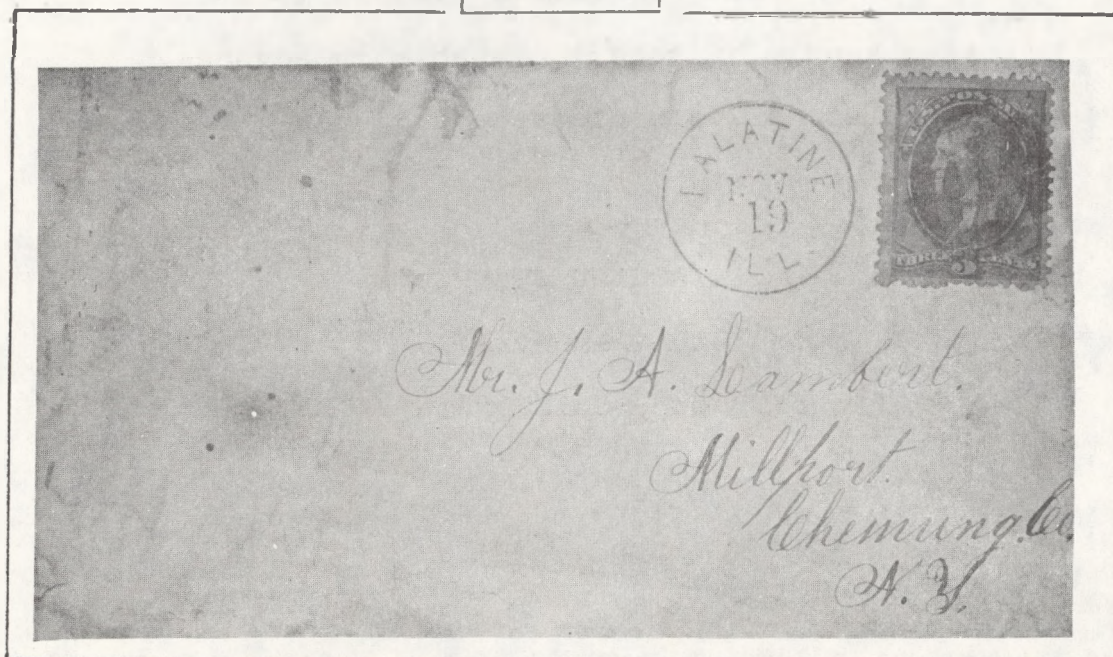 PALATINE
NOV
19
ILL.
THREE CENTS
3
Mr. J. A. Lambert.
Millport.
Chemung. Co.
N. Y.